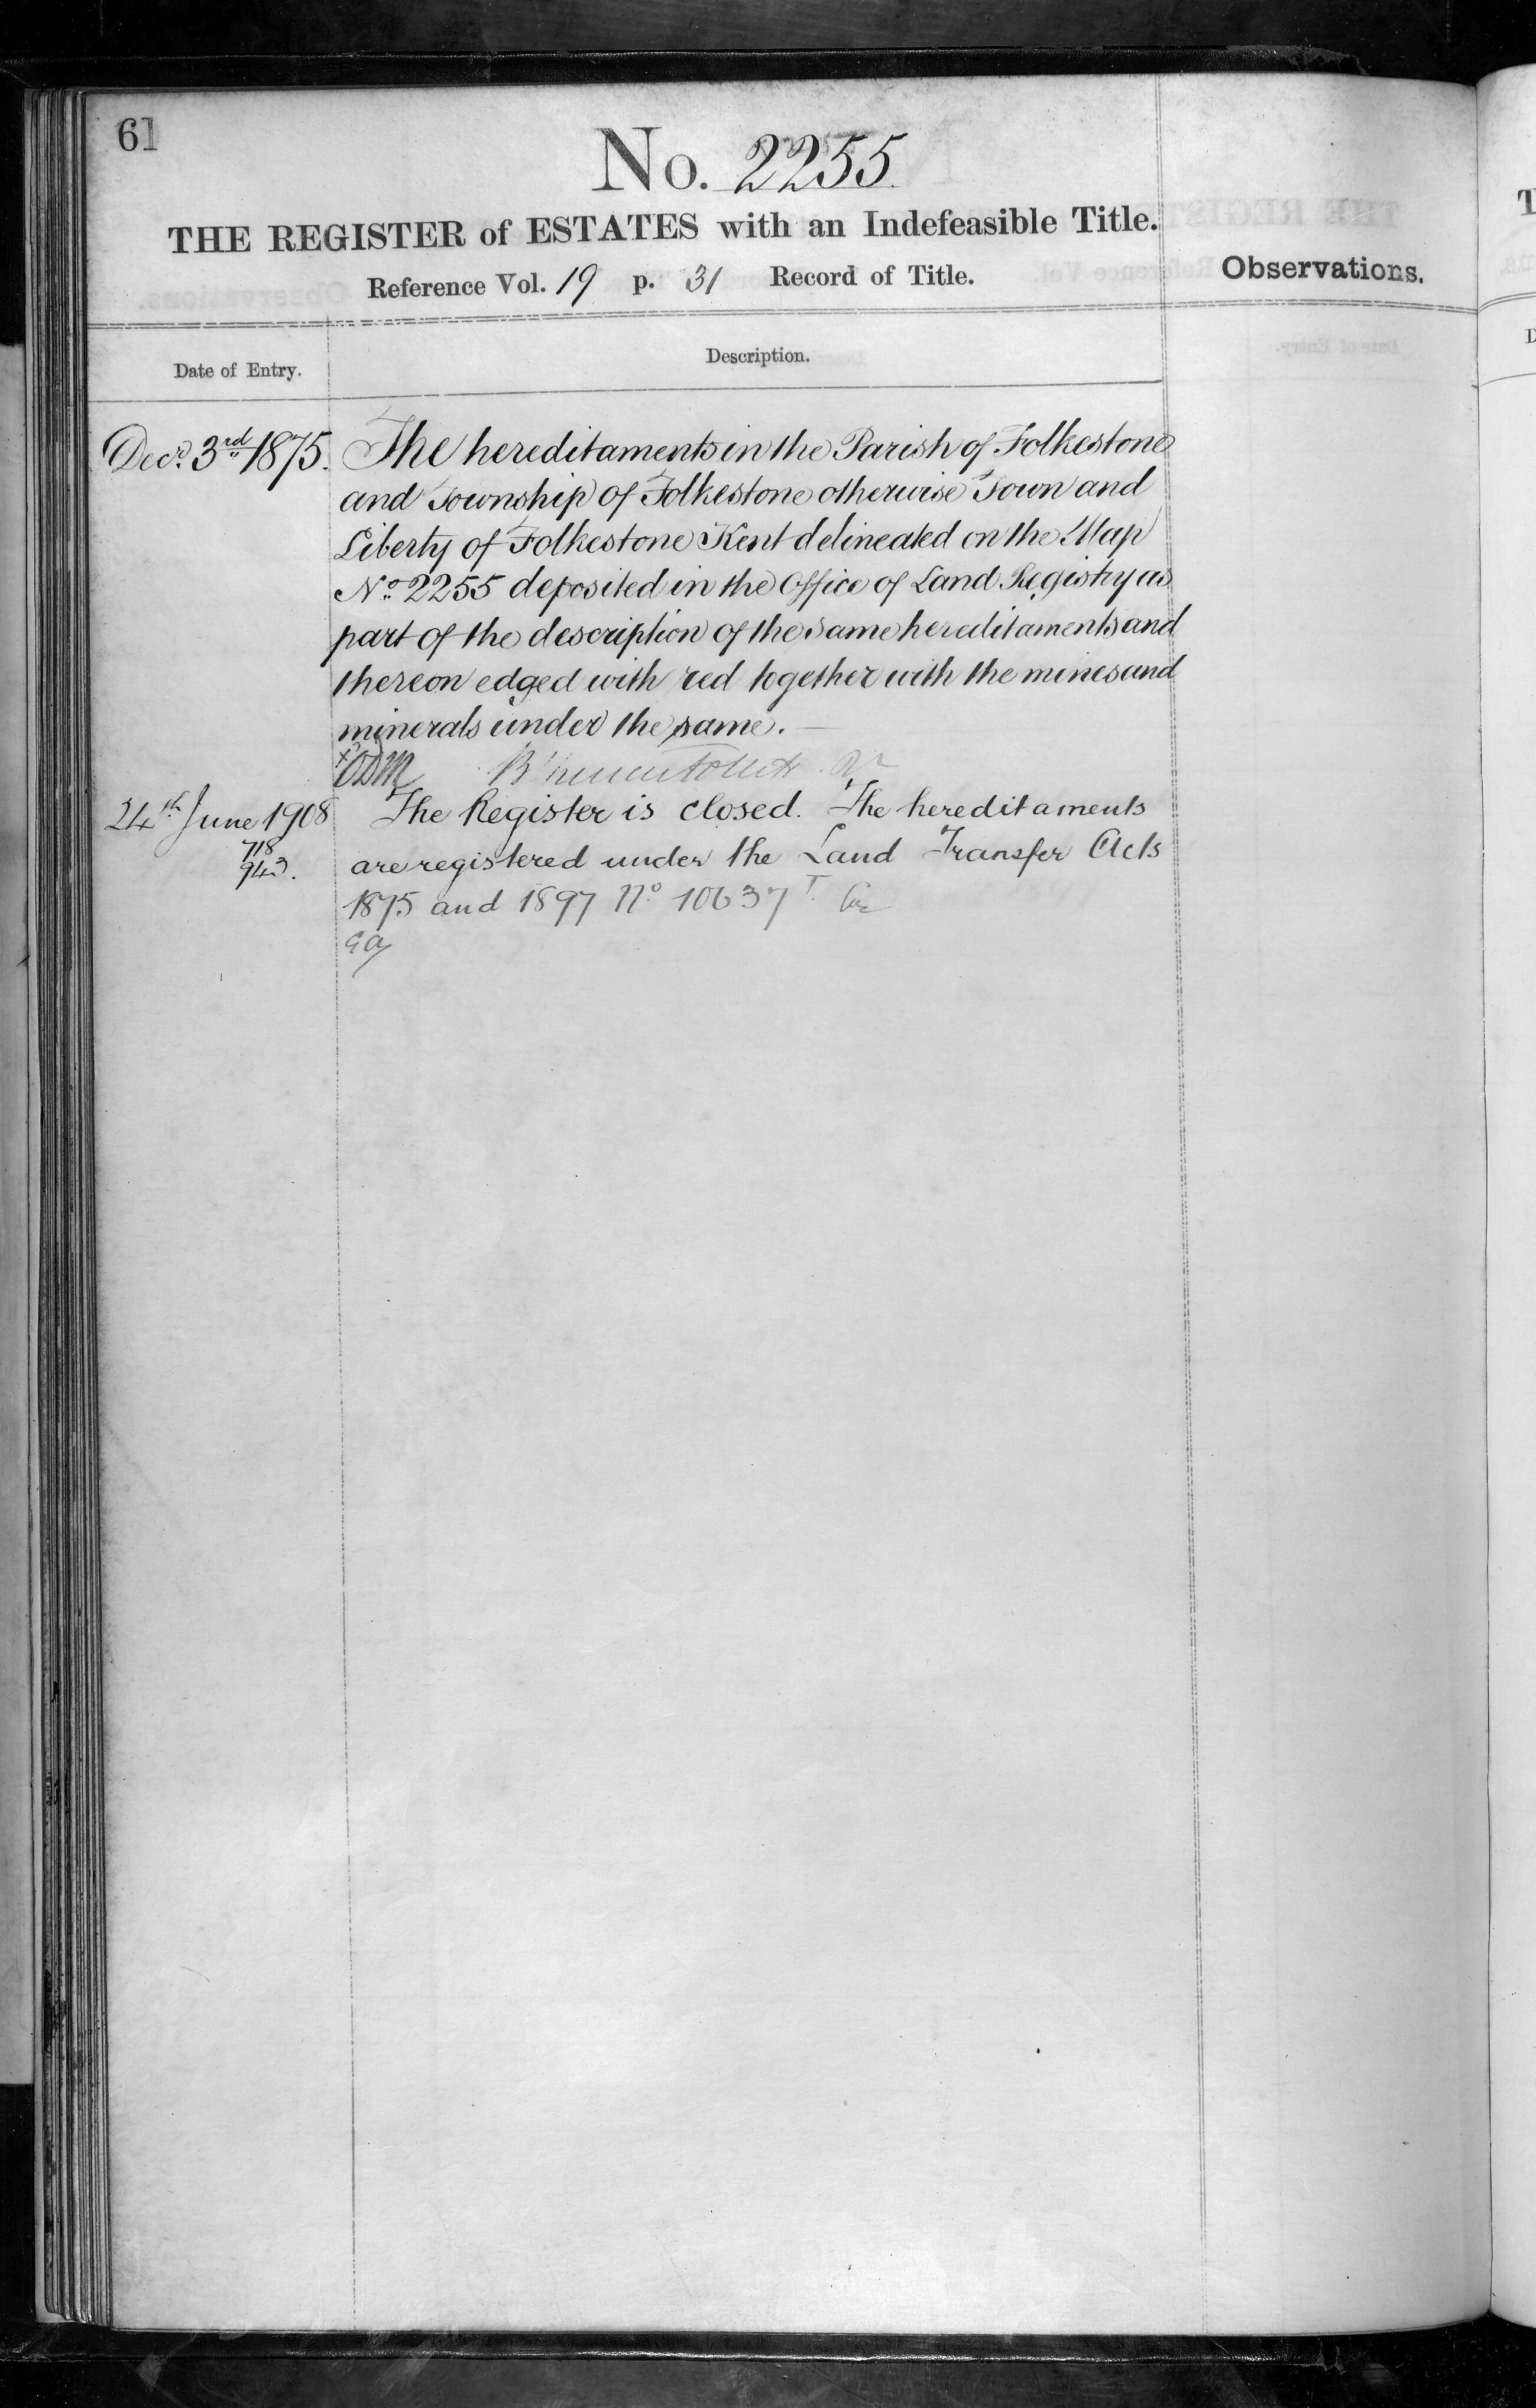 61
No. 2255
THE REGISTER of ESTATES with an Indefeasible Title.
Reference Vol. 19 p. 31 Record of Title.
Observations.
Date of Entry.
Description.
Decr. 3rd 1875. The hereditaments in the Parish of Folkestone
and Township of Folkestone otherwise Town and
Liberty of Folkestone Kent delineated on the Map
No. 2255 deposited in the Office of Land Registry as
part of the description of the same hereditaments and
thereon edged with red together with the mines and
minerals under the same.
24th June 1908 The Register is closed. The hereditaments
718
943. are registered under the Land Transfer Acts
1875 and 1897 No. 10637